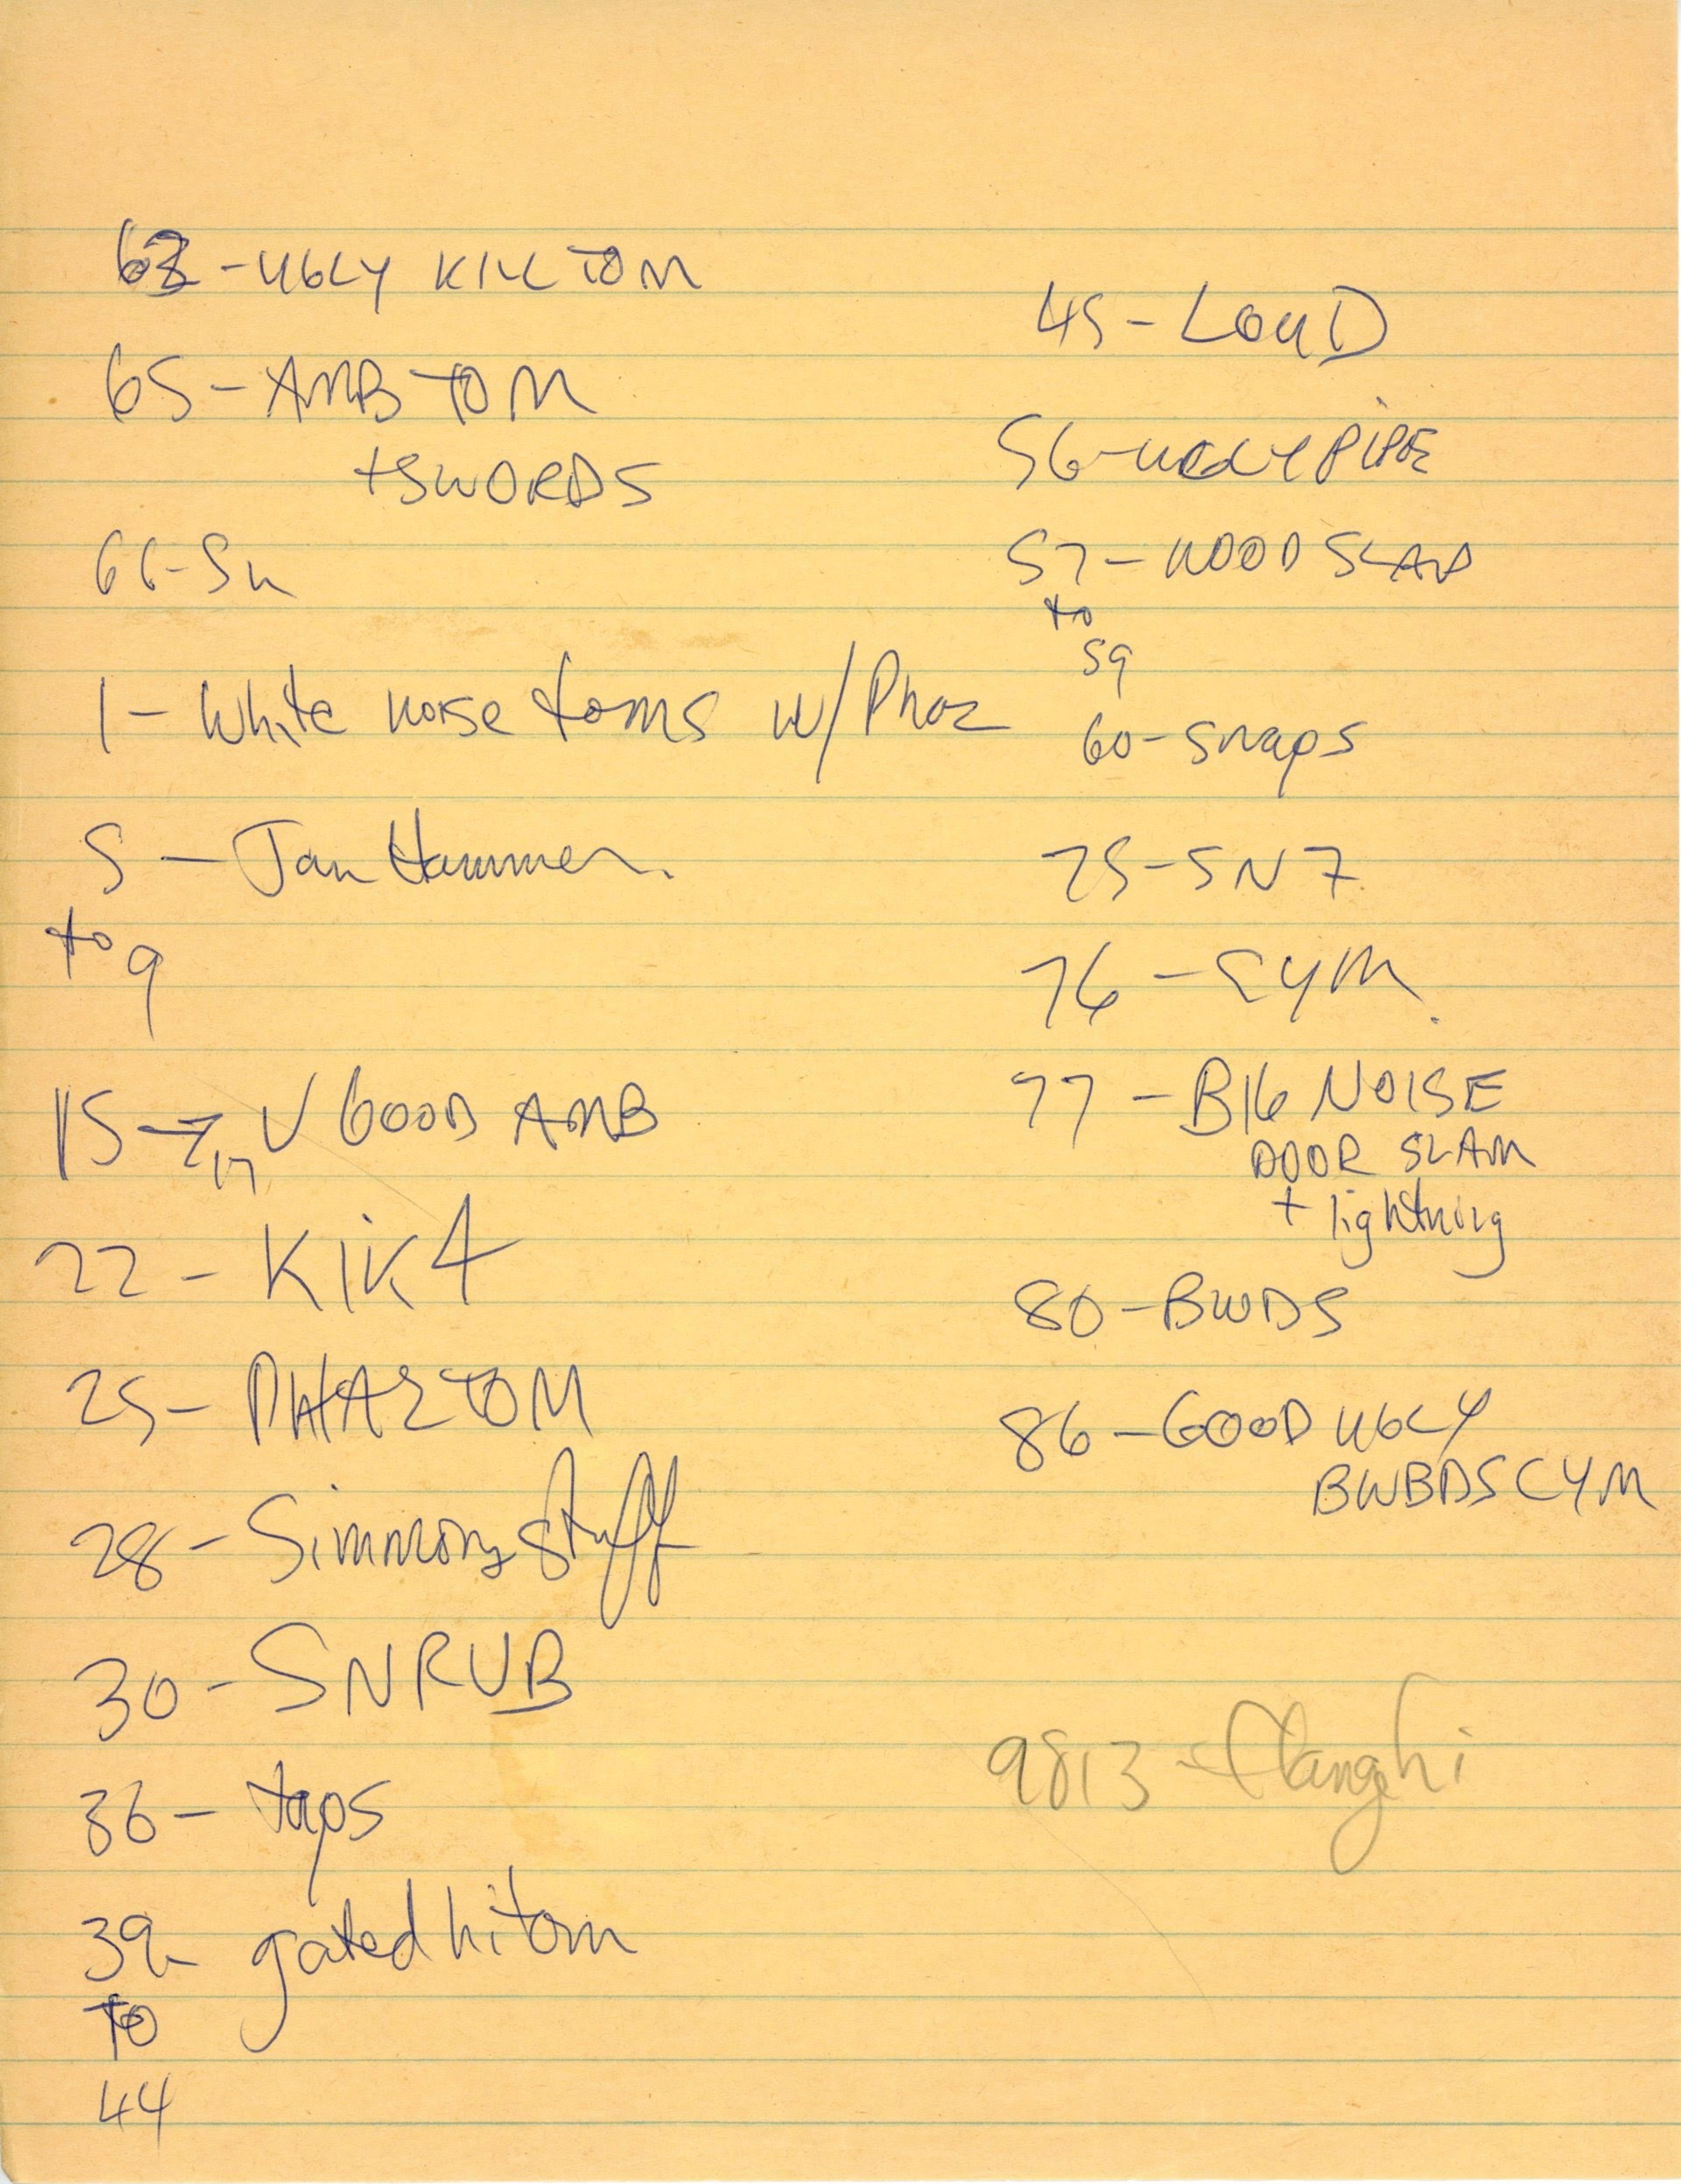 63 - UGLY KILL TOM
65 - AMB TOM
+ SWORDS
66 - Sn
1 - White noise toms w/ Phaz
5 - Jan Hammer.
to 9
15 → 17 V GOOD AMB
22 - KIK 4
25 - PHAZ TOM
28 - Simmons stuff
30 - SNRUB
36 - taps
39 - gated hi tom
TO
44
45 - LOUD
56 - UGLY PIPE
57 - WOOD SLAP
to
59
60 - snaps
75 - SN 7
76 - CYM.
77 - BIG NOISE
DOOR SLAM
+ lightning
80 - BWDS
86 - GOOD UGLY
BWBDS CYM
9813 -